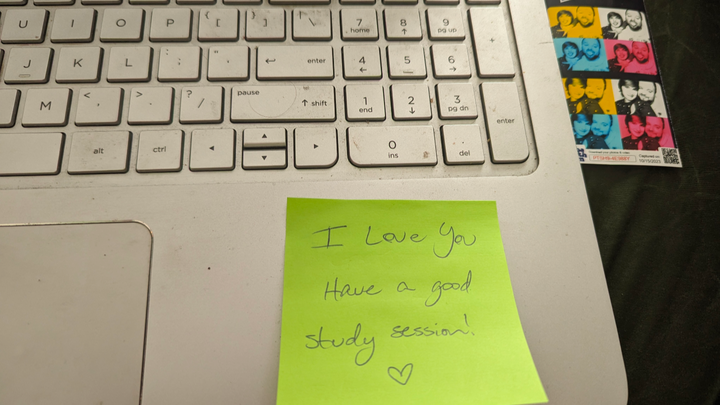 U I O P { [ } ] | \ 7 home 8 ↑ 9 pg up +
J K L : ; " ' ↵ enter 4 ← 5 6 →
M < , > . ? / pause ↑ shift 1 end 2 ↓ 3 pg dn enter
alt ctrl ◄ ▲ ▼ ► 0 ins . del
I Love You
Have a good
study session!
♡